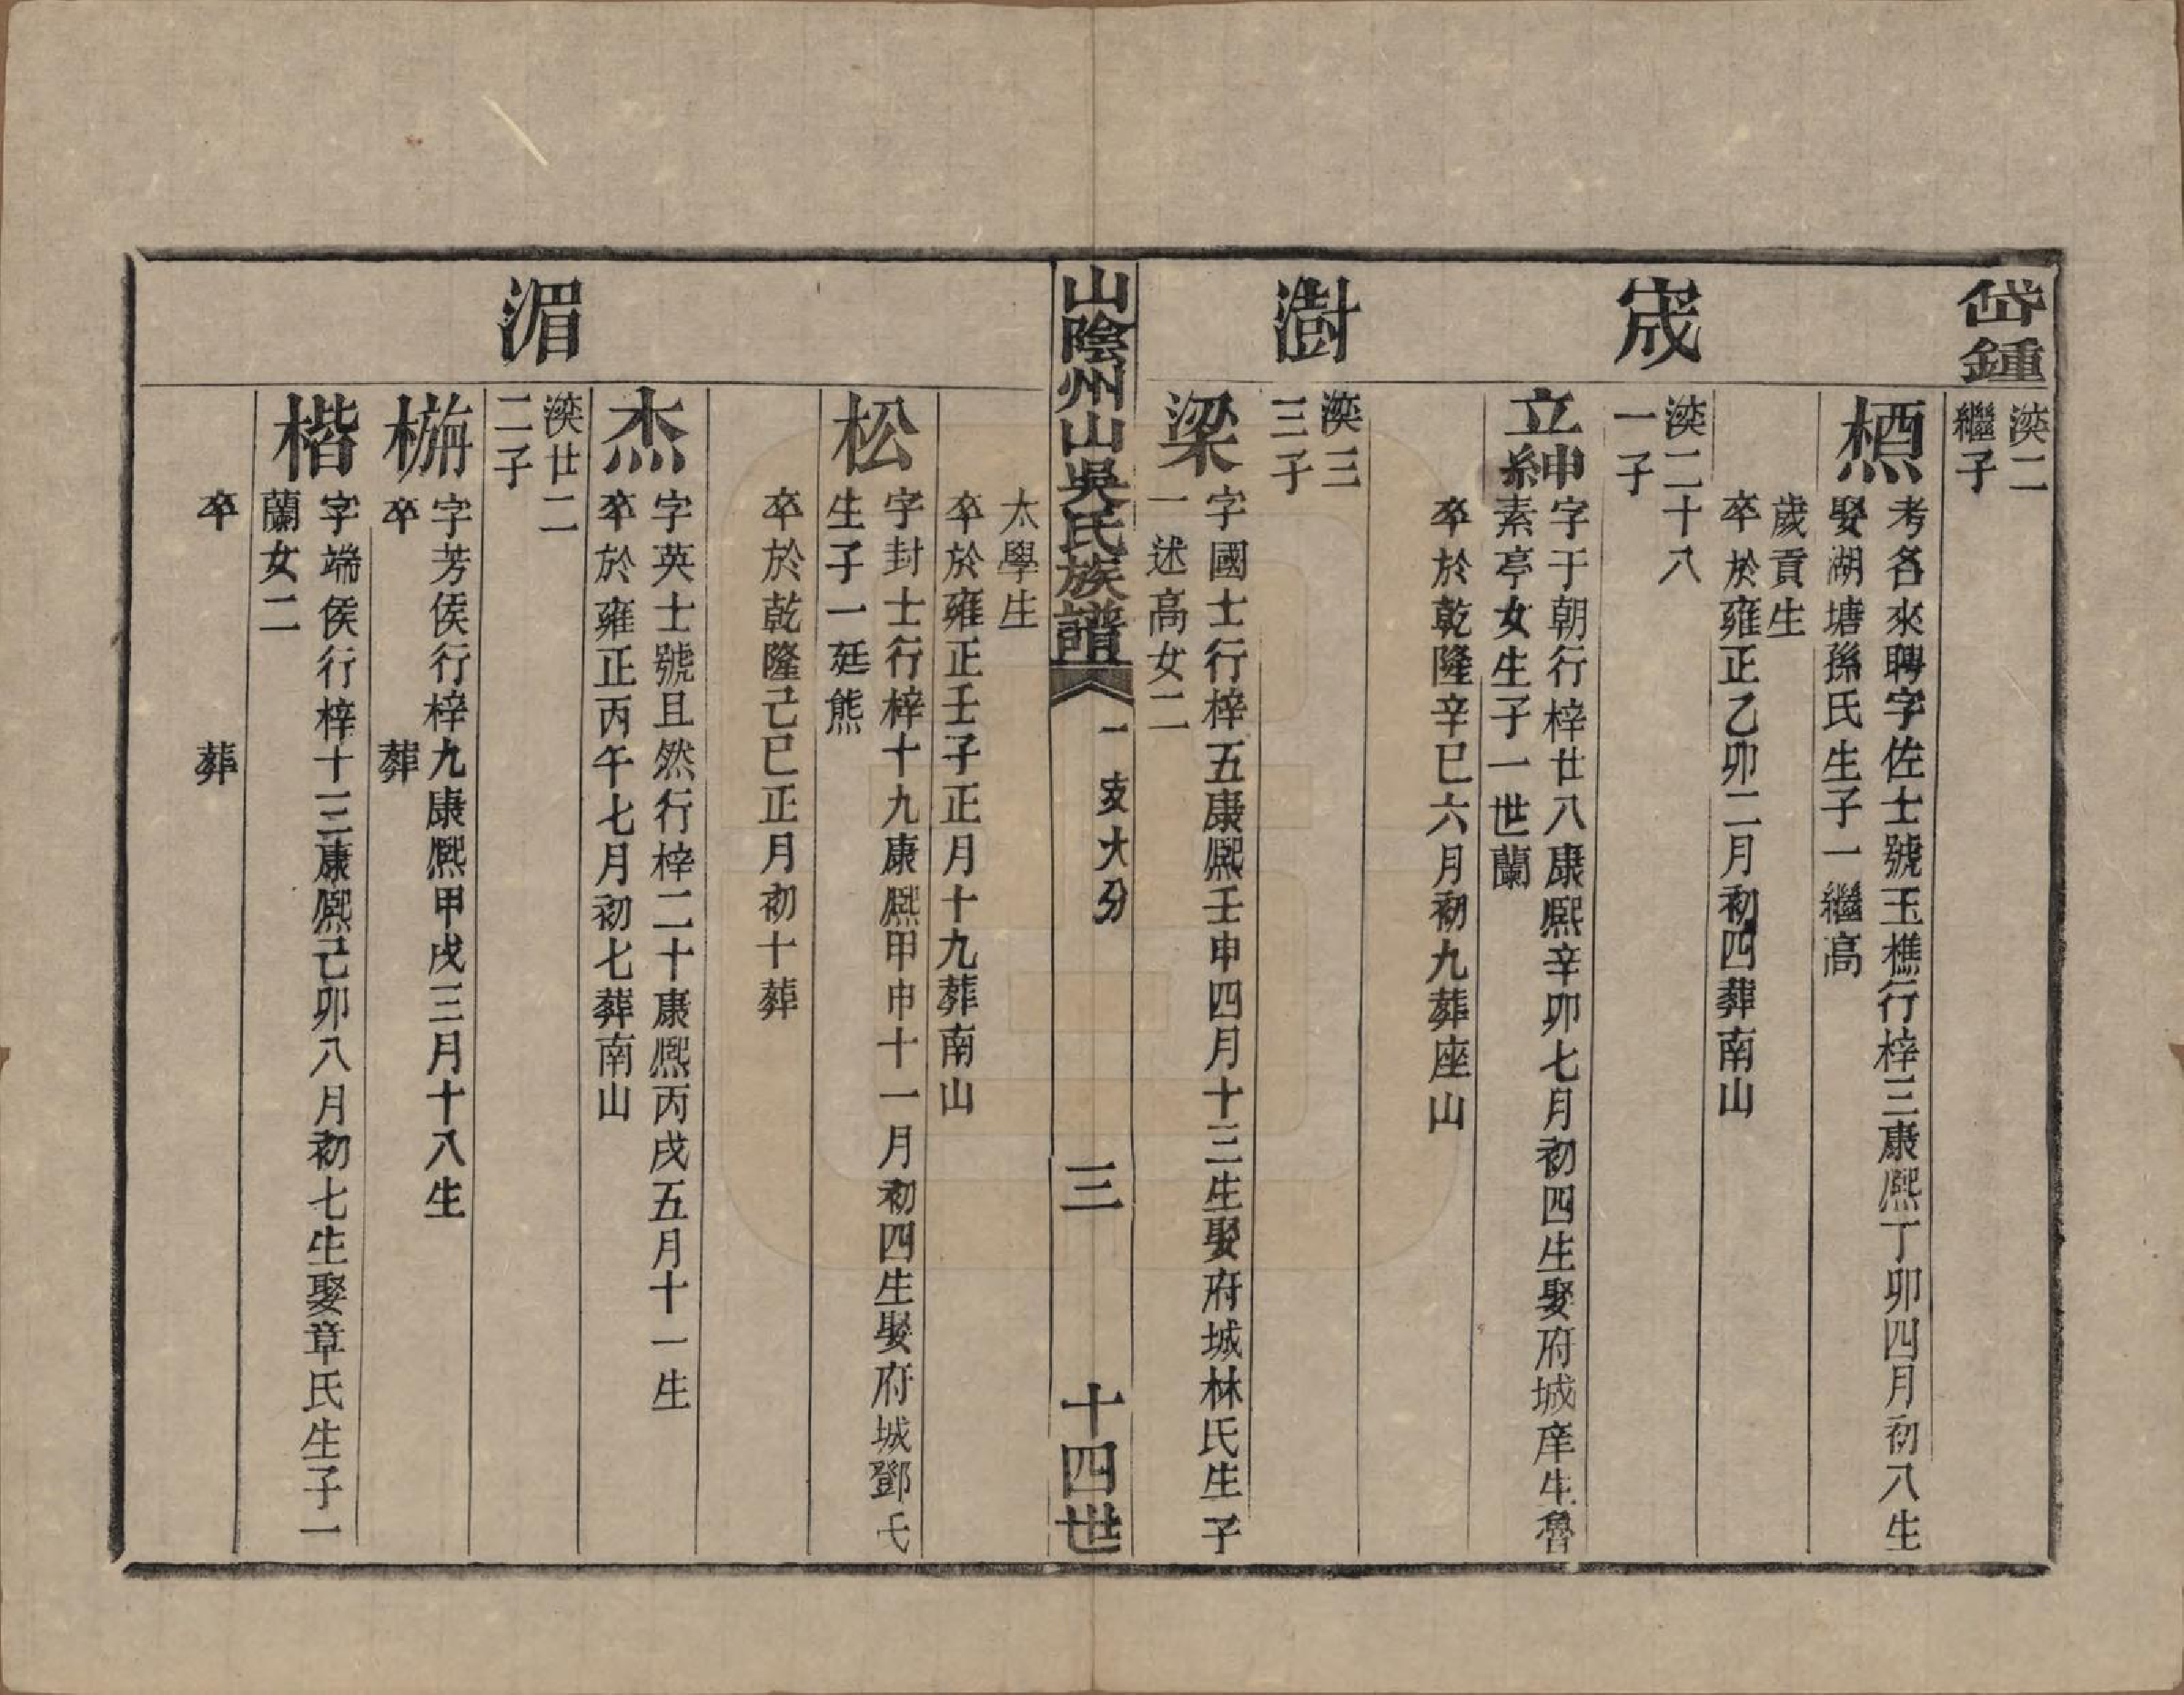 岱鍾
渶二
繼子
槱
考名來聘字佐士號玉樵行梓三康熙丁卯四月初八生
娶湖塘孫氏生子一繼高
歲貢生
卒於雍正乙卯二月初四葬南山
宬
渶二十八
一子
立紳
字于朝行梓廿八康熙辛卯七月初四生娶府城庠生魯
素亭女生子一世蘭
卒於乾隆辛巳六月初九葬座山
澍
渶三
三子
梁
字國士行梓五康熙壬申四月十三生娶府城林氏生子
一述高女二
山陰州山吳氏族譜
一支大分
三
十四世
太學生
卒於雍正壬子正月十九葬南山
松
字封士行梓十九康熙甲申十一月初四生娶府城鄧氏
生子一廷熊
卒於乾隆己巳正月初十葬
杰
字英士號且然行梓二十康熙丙戌五月十一生
卒於雍正丙午七月初七葬南山
湄
渶廿二
二子
字芳侯行梓九康熙甲戌三月十八生
卒
葬
楷
字端侯行梓十三康熙己卯八月初七生娶章氏生子一
蘭女二
卒
葬